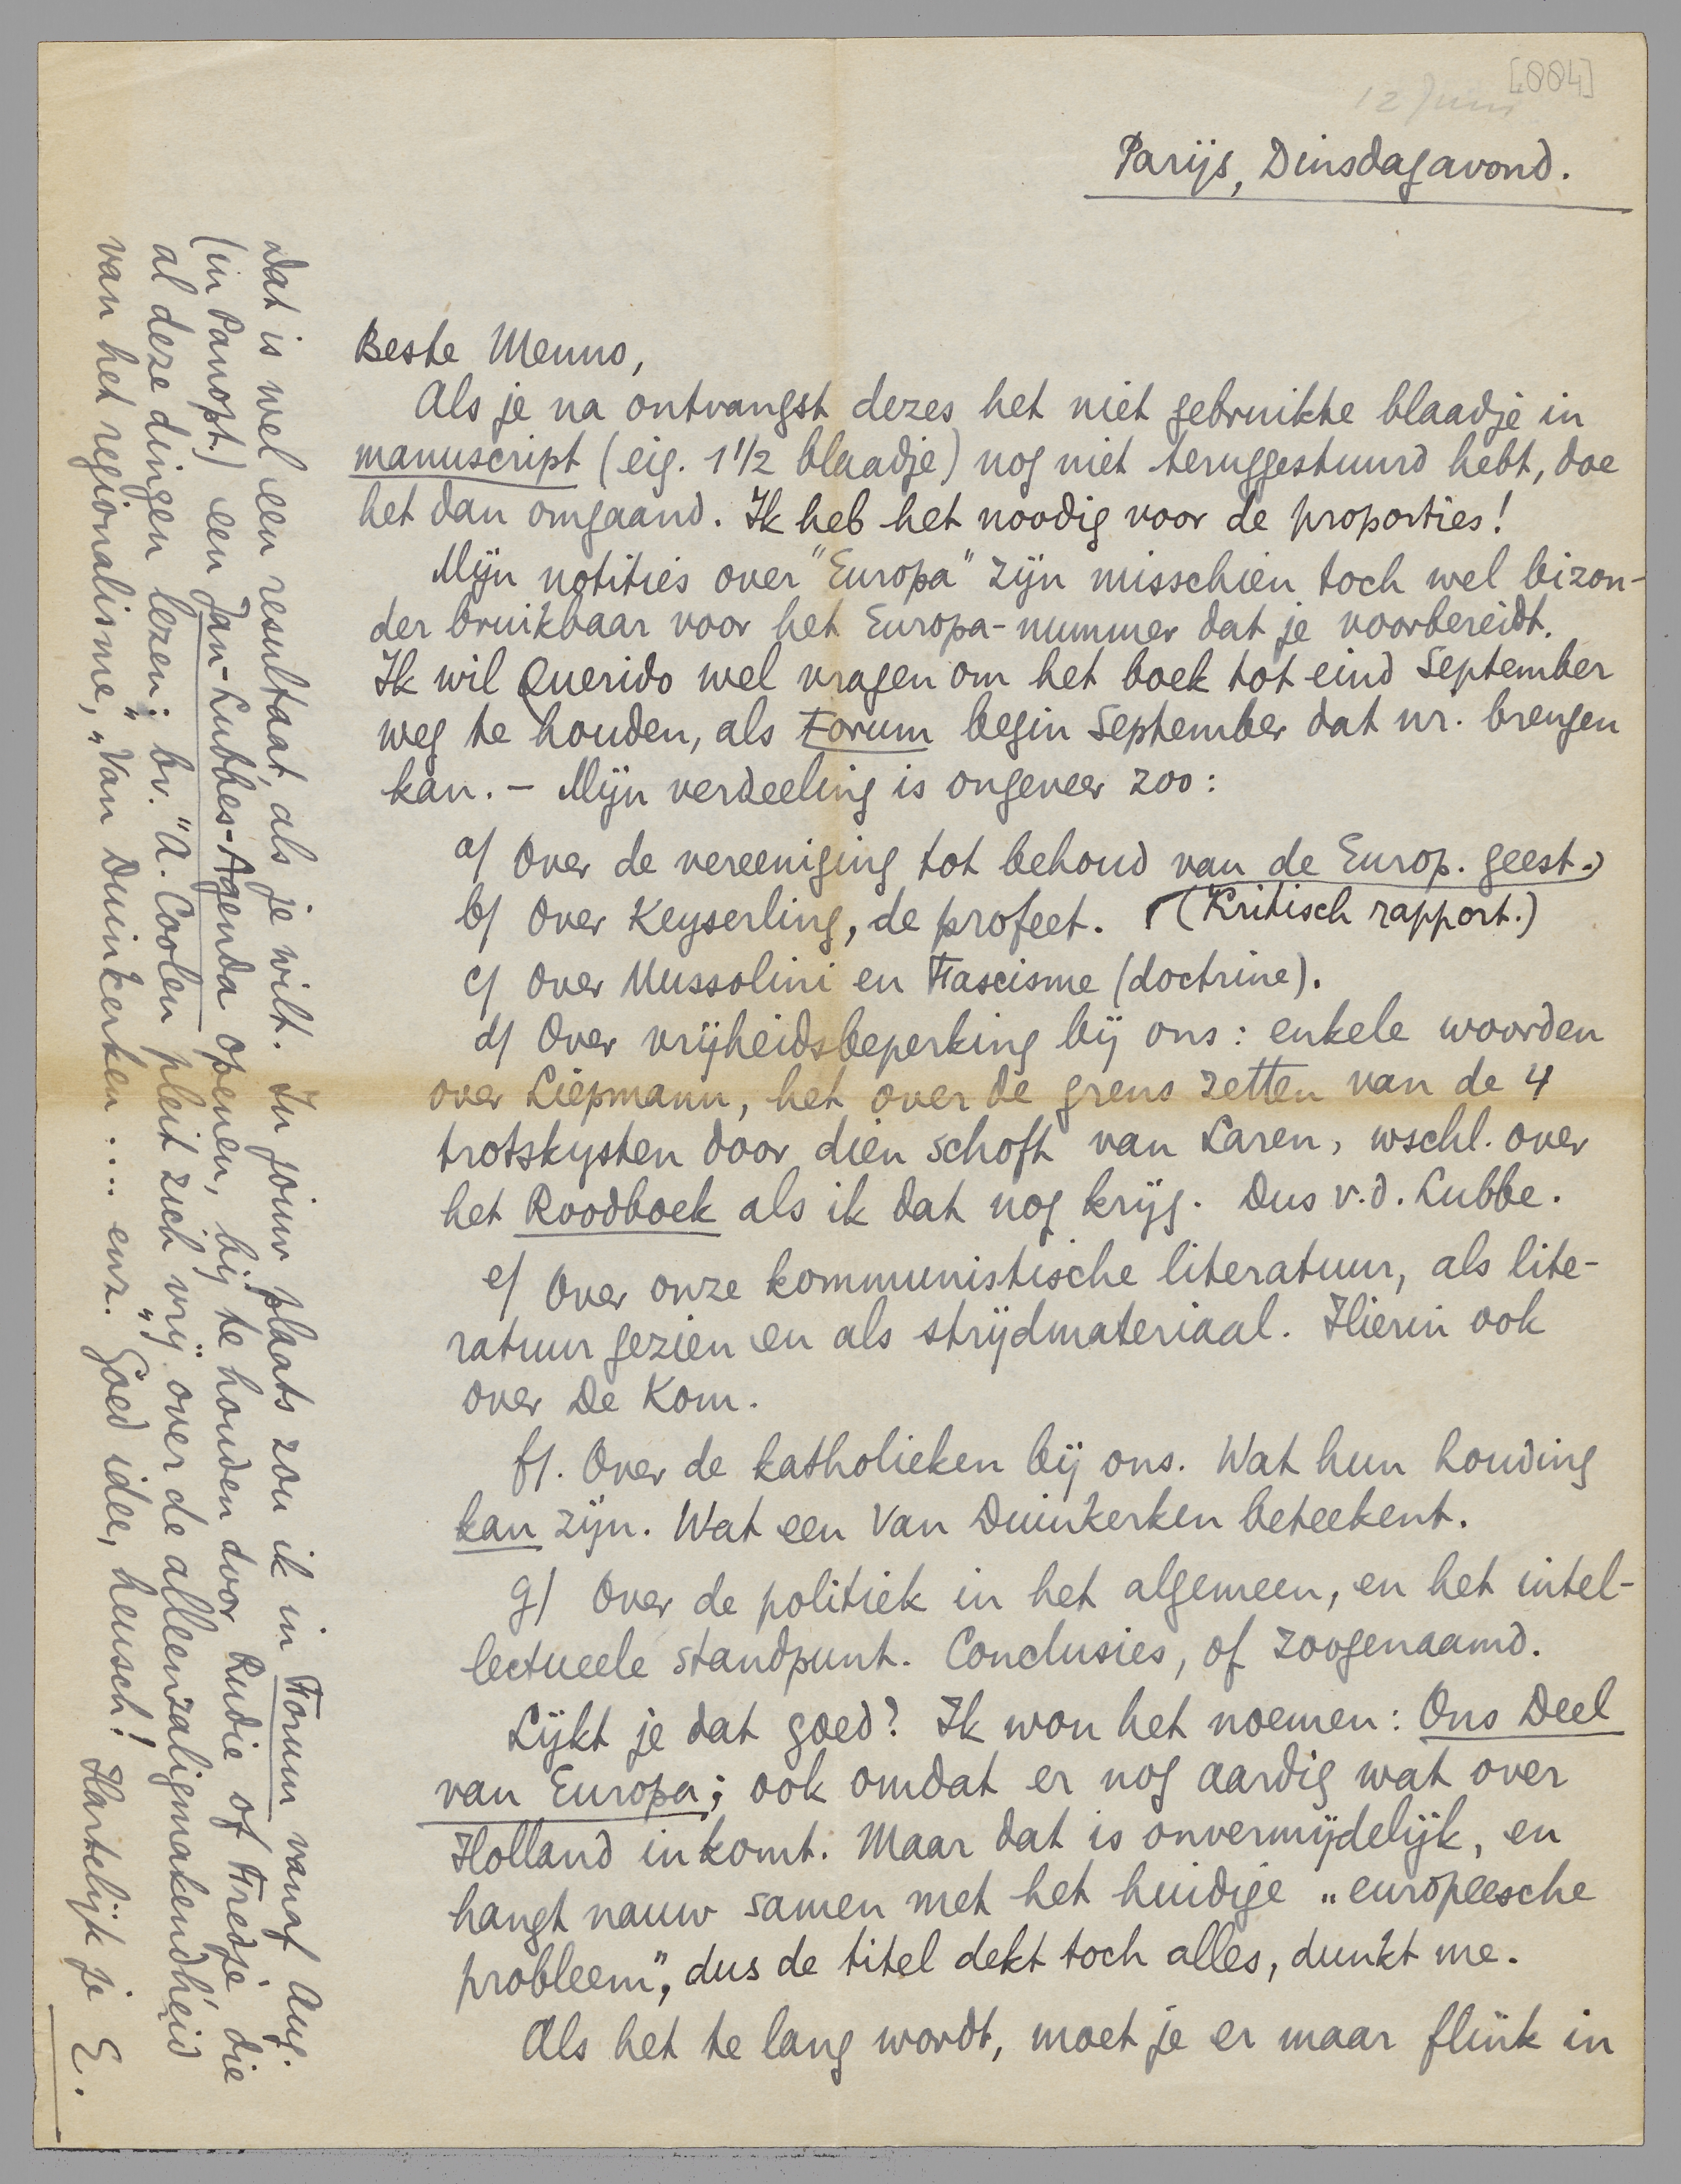 [884]
12 Juni
Parijs, Dinsdagavond.
Beste Menno,
Als je na ontvangst dezes het niet gebruikte blaadje in
manuscript (eig. 1 1/2 blaadje) nog niet teruggestuurd hebt, doe
het dan omgaand. Ik heb het noodig voor de proporties!
Mijn notities over "Europa" zijn misschien toch wel bizon-
der bruikbaar voor het Europa-nummer dat je voorbereidt.
Ik wil Querido wel vragen om het boek tot eind September
weg te houden, als Forum begin September dat nr. brengen
kan. – Mijn verdeeling is ongeveer zoo:
a) Over de vereeniging tot behoud van de Europ. geest.
b) Over Keyserling, de profeet. (Kritisch rapport.)
c) Over Mussolini en Fascisme (doctrine).
d) Over vrijheidsbeperking bij ons: enkele woorden
over Liepmann, het over de grens zetten van de 4
trotskysten door dien schoft van Laren, wschl. over
het Roodboek als ik dat nog krijg. Dus v.d. Lubbe.
e) Over onze kommunistische literatuur, als lite-
ratuur gezien en als strijdmateriaal. Hierin ook
over De Kom.
f). Over de katholieken bij ons. Wat hun houding
kan zijn. Wat een Van Duinkerken beteekent.
g) Over de politiek in het algemeen, en het intel-
lectueele standpunt. Conclusies, of zoogenaamd.
Lijkt je dat goed? Ik wou het noemen: Ons Deel
van Europa; ook omdat er nog aardig wat over
Holland in komt. Maar dat is onvermijdelijk, en
hangt nauw samen met het huidige „europeesche
probleem", dus de titel dekt toch alles, dunkt me.
Als het te lang wordt, moet je er maar flink in
dat is wel een resultaat, als je wilt. In jouw plaats zou ik in Forum vanaf Aug.
(in Panopt.) een Jan-Lubbes-Agenda openen, bij te houden door Rudie of Fredje die
al deze dingen lezen; bv. "A. Coolen pleit zich vrij over de alleenzaligmakendheid
van het regionalisme," „Van Duinkerken .... enz." Goed idee, heusch! Hartelijk je E.